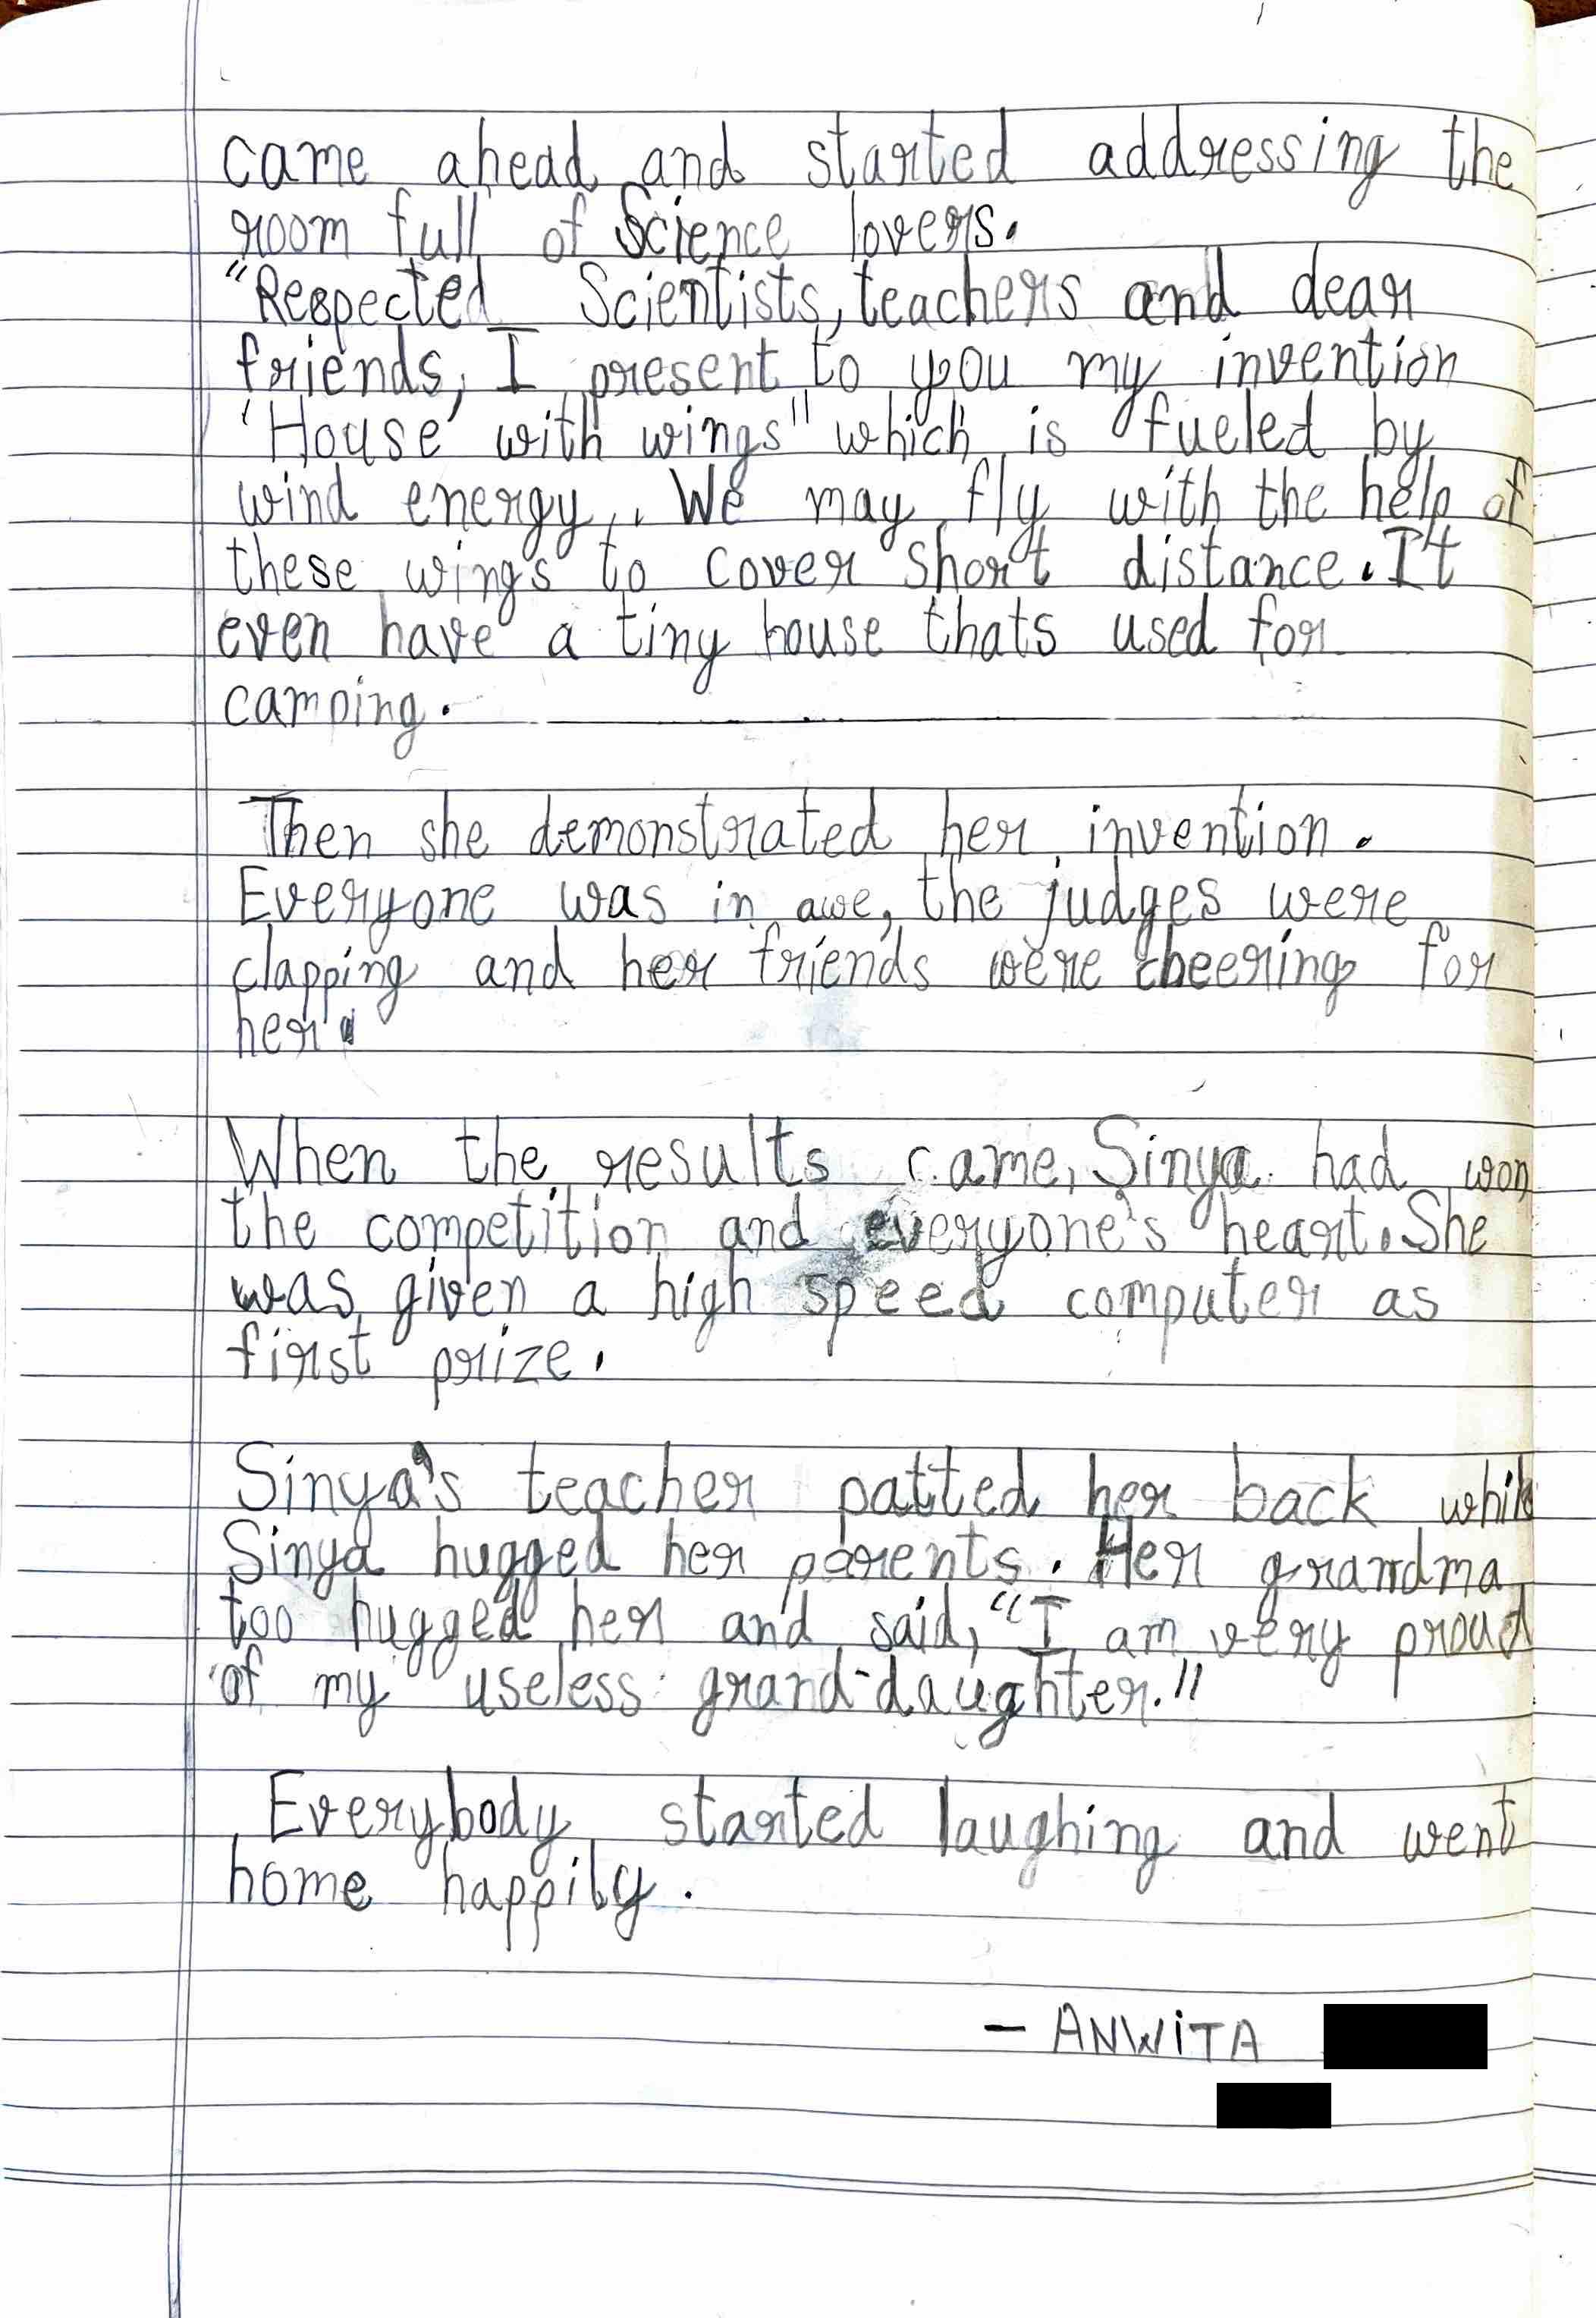 came ahead and started addressing the
room full of Science lovers.
"Respected Scientists, teachers and dear
friends, I present to you my invention
"House with wings" which is fueled by
wind energy. We may fly with the help of
these wings to cover short distance. It
even have a tiny house thats used for
camping.
Then she demonstrated her invention.
Everyone was in awe, the judges were
clapping and her friends were cheering for
her.
When the results came, Sinya had won
the competition and everyone's heart. She
was given a high speed computer as
first prize.
Sinya's teacher patted her back while
Sinya hugged her parents. Her grandma
too hugged her and said, "I am very proud
of my useless grand-daughter."
Everybody started laughing and went
home happily.
- ANWiTA